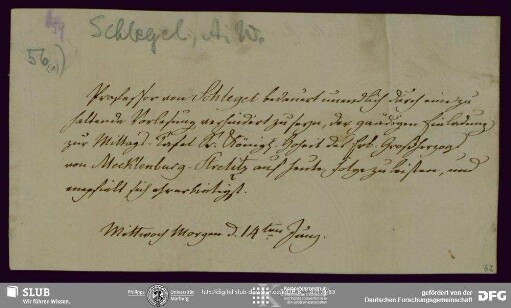 Schlegel, A. W.
56(1)
Professor von Schlegel bedauert unendlich durch eine zu
haltende Vorlesung verhindert zu seyn, der gnädigen Einladung
zur Mittags-Tafel Sr. Königl. Hoheit des Erb-Großherzogs
von Mecklenburg-Strelitz auf heute Folge zu leisten, und
empfiehlt sich ehrerbietigst.
Mittwoch Morgen d. 14ten Juny.
SLUB
Wir führen Wissen.
Philipps Universität
Marburg
http://digital.slub-dresden.de/
gefördert von der
Deutschen Forschungsgemeinschaft
DFG